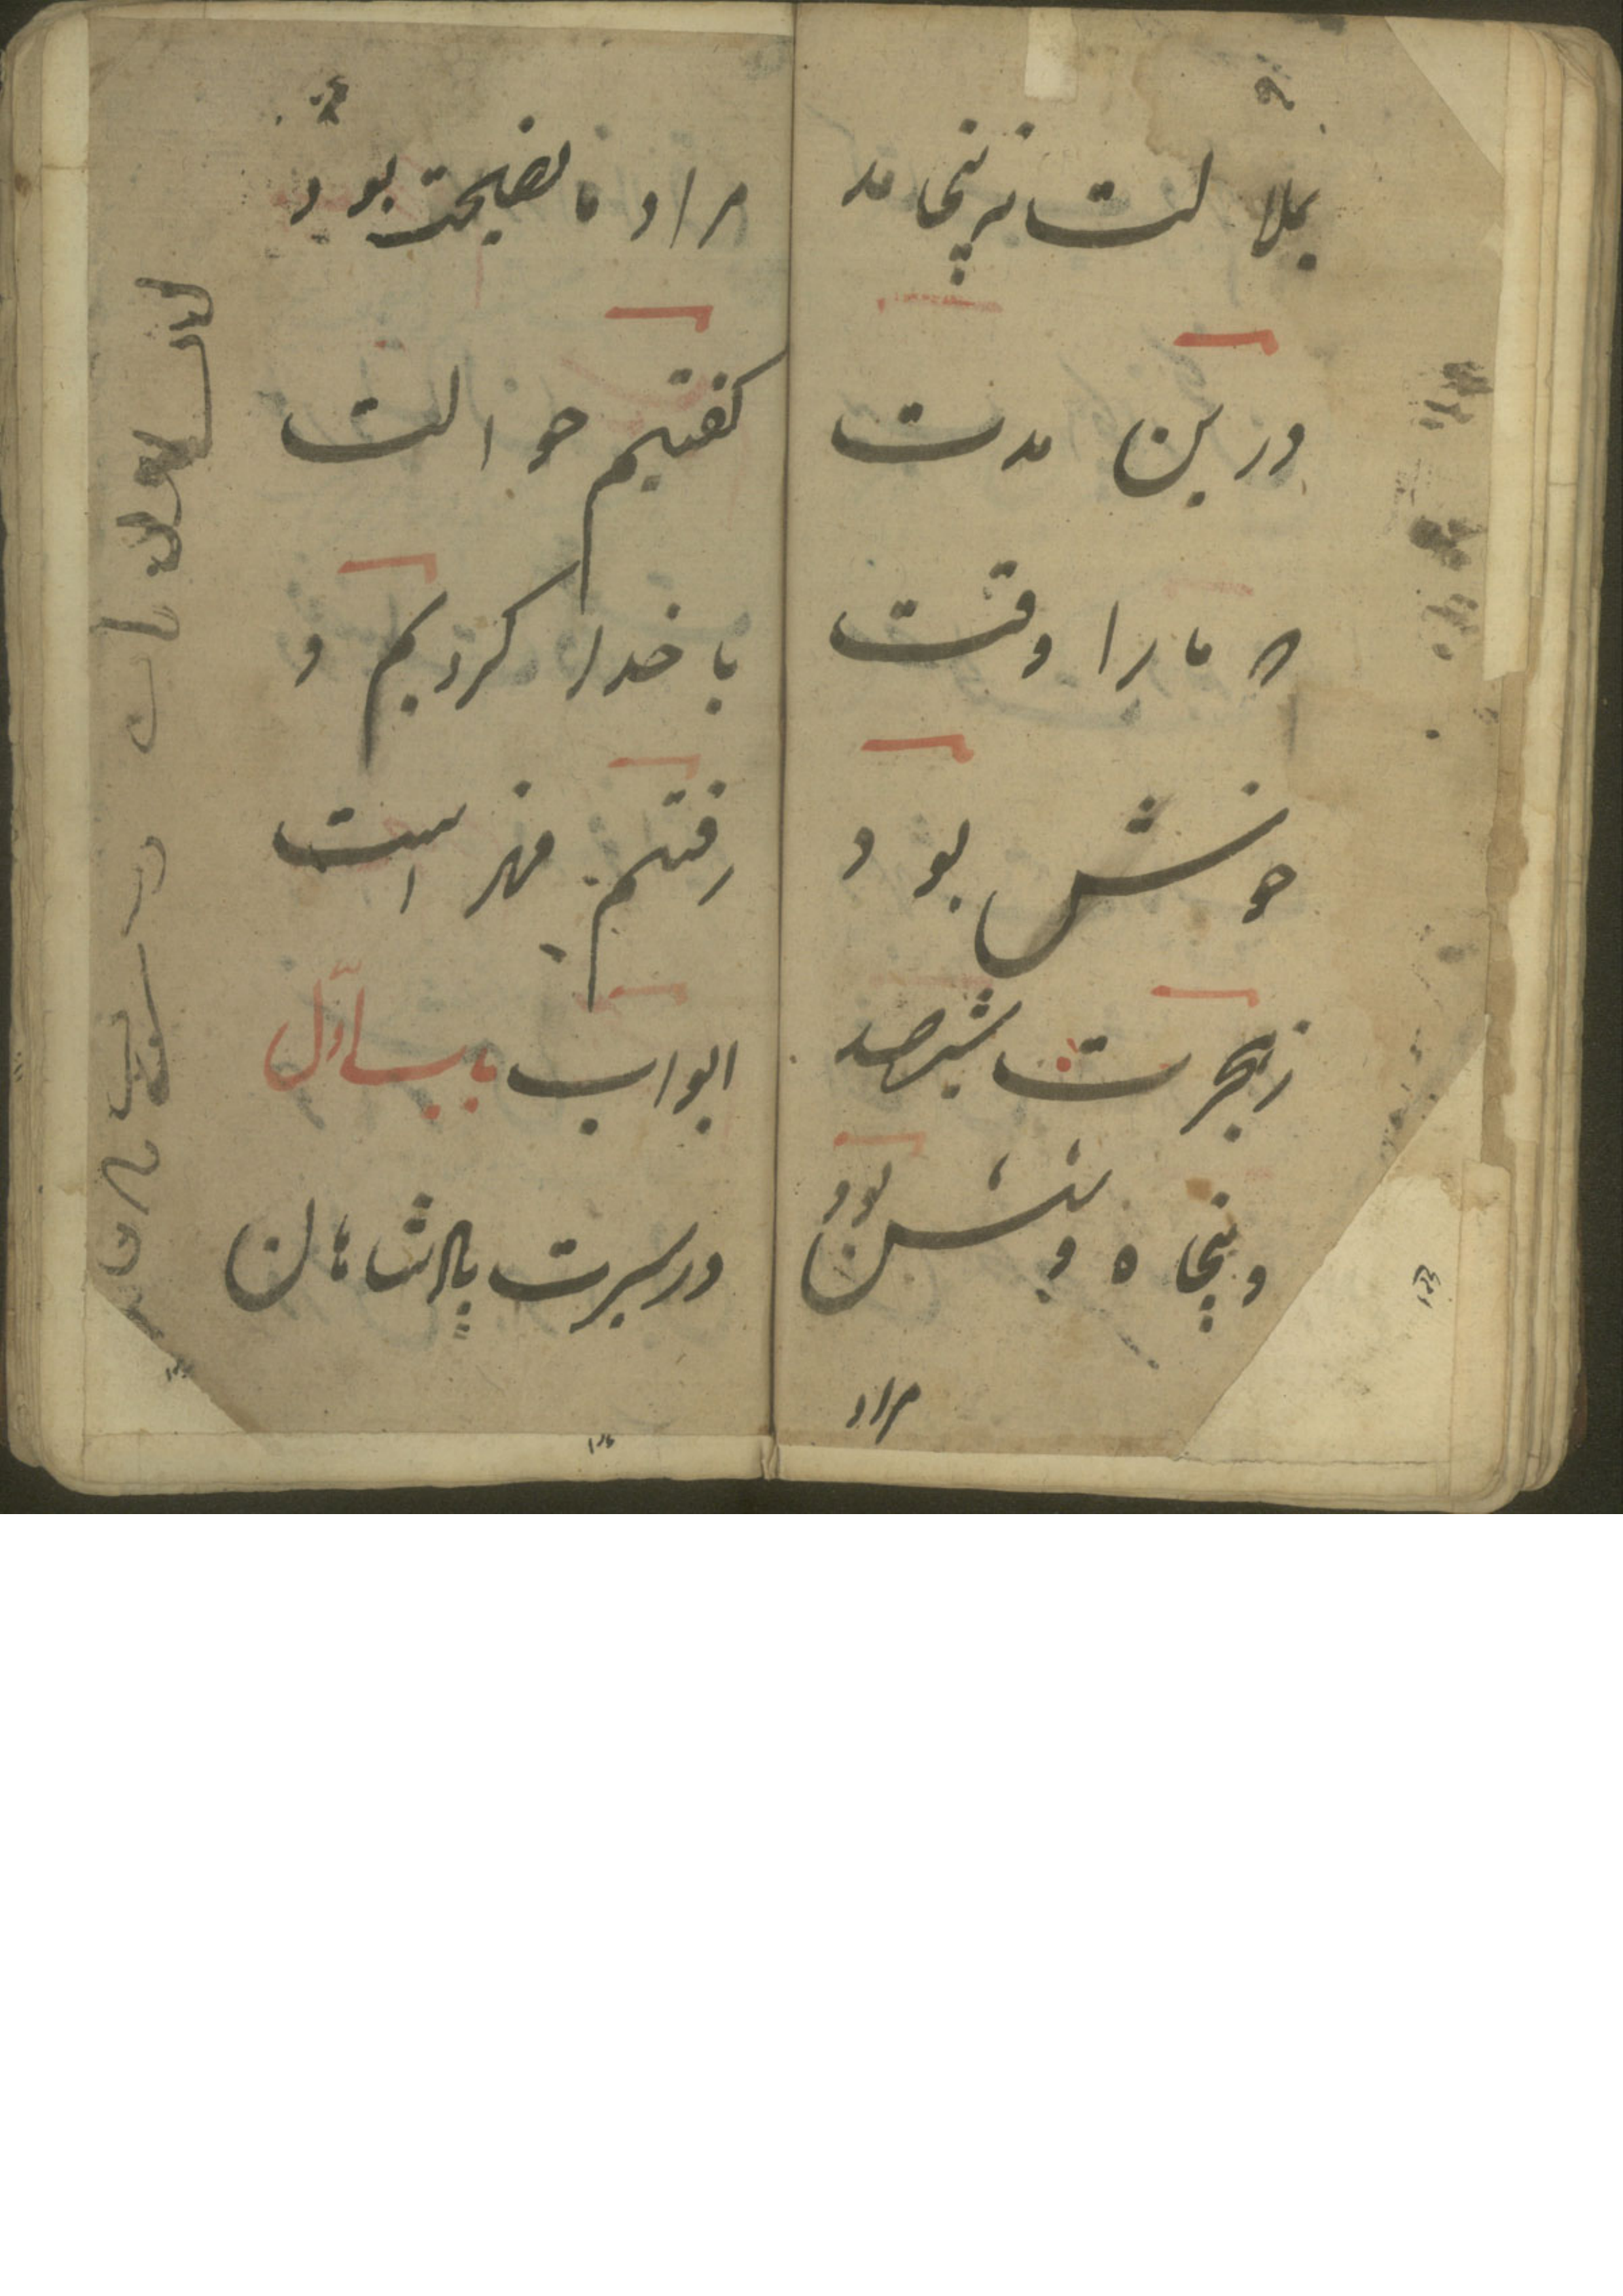 بملالت نه پنجامد
درین مدت
که ما را وقت
خوش بود
ز هجرت ششصد
و پنجاه و شش بود
مراد
مراد ما نصیحت بود و
کفتیم حوالت
با خدا کردیم و
رفتیم فهرست
ابواب باب اول
در سیرت پادشاهان